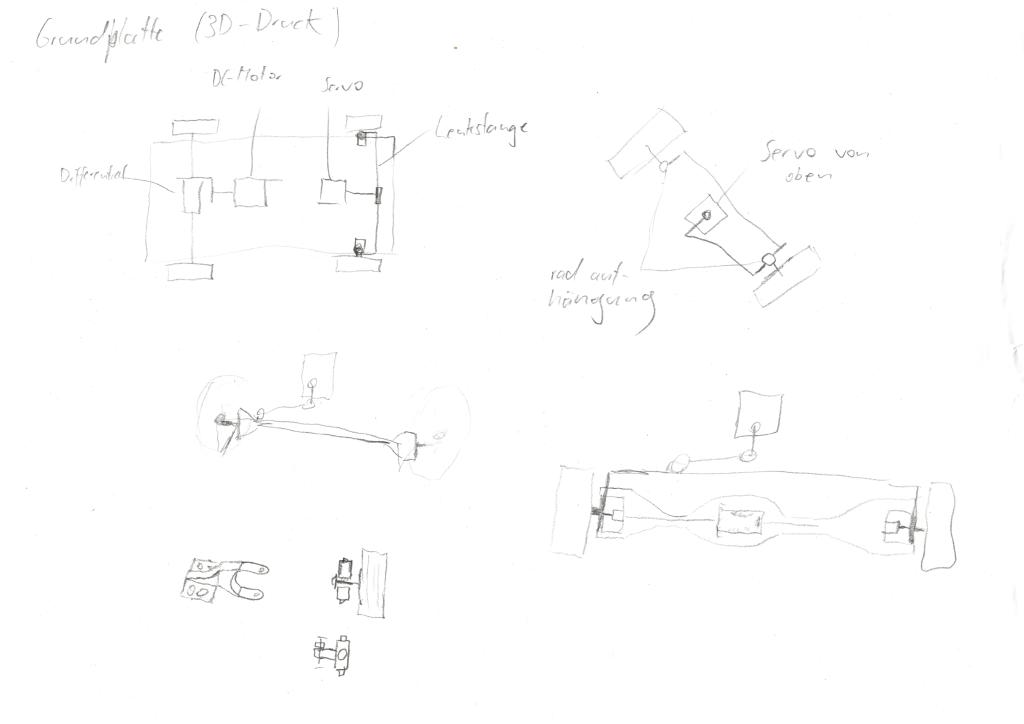 Grundplatte (3D-Druck)
DC-Motor
Servo
Lenkstange
Differential
Servo von
oben
rad auf-
hängung